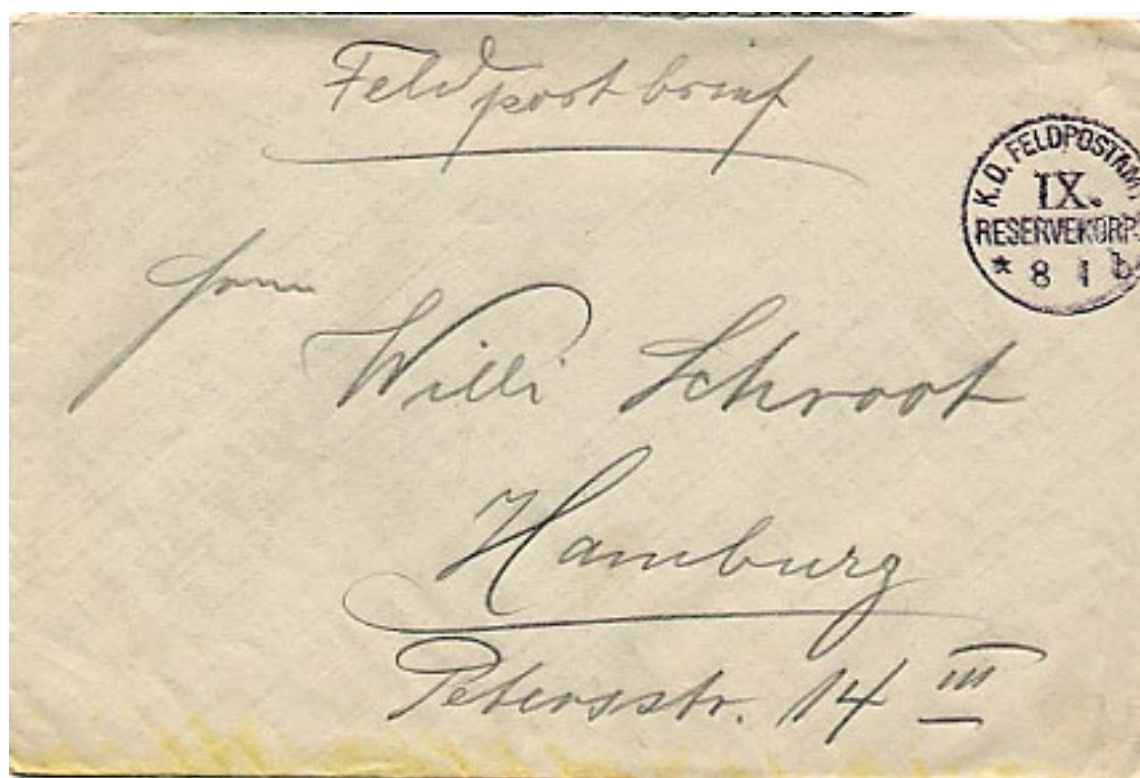 Feldpostbrief
K.D. FELDPOSTAMT
IX.
RESERVEKORP
* 8 1 b
Herrn
Willi Schroot
Hamburg
Petersstr. 14 III